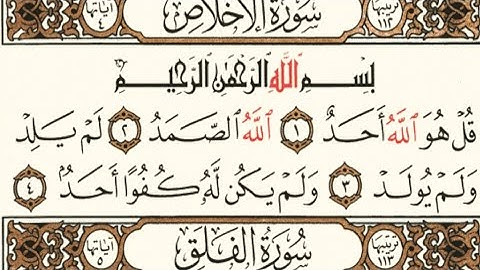 ترتيبها ١١٢ سُورَةُ الإِخْلَاصِ آياتها ٤
بِسْمِ ٱللَّهِ ٱلرَّحْمَٰنِ ٱلرَّحِيمِ
قُلْ هُوَ ٱللَّهُ أَحَدٌ ١ ٱللَّهُ ٱلصَّمَدُ ٢ لَمْ يَلِدْ
وَلَمْ يُولَدْ ٣ وَلَمْ يَكُن لَّهُۥ كُفُوًا أَحَدٌۢ ٤
ترتيبها ١١٣ سُورَةُ الْفَلَقِ آياتها ٥